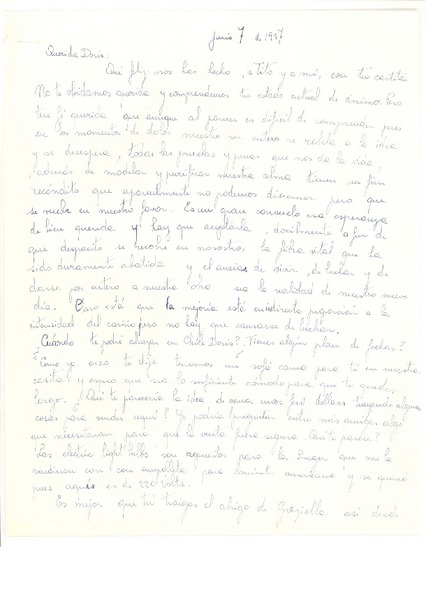 junio 7 de 1957
Querida Doris:
Qué feliz nos has hecho, a Tito y a mí, con tu cartita.
No te olvidamos querida y comprendemos tu estado actual de ánimo. Pero
ten fé querida que aunque al parecer es difícil de comprender pues
en los momentos de dolor nuestro ser entero se rebela a la idea
y se desespera, todas las pruebas y penas que nos da la vida
además de modelar y purificar nuestra alma tienen un fin
recóndito que aparentemente no podemos discernir pero que
se recibe en nuestro favor. Es un gran consuelo esa esperanza
de bien querida y hay que aceptarla docilmente a fin de
que despacito se recobre en nosotros la fibra vital que ha
sido duramente abatida y el ansia de vivir, de luchar y de
darse por entero a nuestra sea la realidad de nuestro nuevo
día. Claro está que la mejoría está en pugna a la
intensidad del cariño pero no hay que cansarse de luchar.
¿Cuándo te podré abrazar en Chile Doris? ¿Tienes algún plan de fechas?
Como ya creo te dije tenemos un sofá cama para tí en nuestra
casita y espero que sea lo suficiente cómodo para que te quedes
largo. ¿Qué te parecería la idea de sacar unos few dollars trayendo algunas
cosas para vender aquí? Yo podría preguntar entre mis amigas algo
que necesitaran para que la venta fuera segura. ¿Qué te parece?
Los electric light bulbs son repuestos para la Singer que me la
vendieron con una ampolleta para corriente americana y se quemó
pues aquí es de 220 volts.
Es mejor que tú traigas el abrigo de Graziella así desde